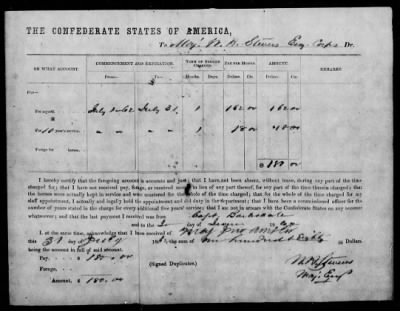 THE CONFEDERATE STATES OF AMERICA,
To Maj. W. H. Stevens Eng. Corps Dr.
ON WHAT ACCOUNT. COMMENCEMENT AND EXPIRATION. TIME OF SERVICE CHARGED. PAY PER MONTH. AMOUNT. REMARKS.
From— To— Months. Days. Dollars. Cts. Dollars. Cts.
PAY—
For myself, July 1. 62 July 31. 1 162 00 162 00
For 10 years' service, 1 18 00 18 00
FORAGE—
For
$ 180 00
I hereby certify that the foregoing account is accurate and just; that I have not been absent, without leave, during any part of the time
charged for; that I have not received pay, forage, or received in lieu of any part thereof, for any part of the time therein charged; that
the horses were actually kept in service and were mustered for the whole of the time charged; that for the whole of the time charged for my
staff appointment, I actually and legally held the appointment and did duty in the department; that I have been a commissioned officer for the
number of years stated in the charge for every additional five years' service; that I am not in arrears with the Confederate States on any account
whatsoever; and that the last payment I received was from Capt. Barksdale
and to the 30 day of June 186
I, at the same time, acknowledge that I have received of Maj. Jno Ambler
this 31 day of July 186 , the sum of One hundred & Eighty Dollars,
being the amount in full of said account.
Pay, - - $ 180.00
Forage, - -
Amount, $ 180.00
(Signed Duplicates.)
W H Stevens
Maj. Eng